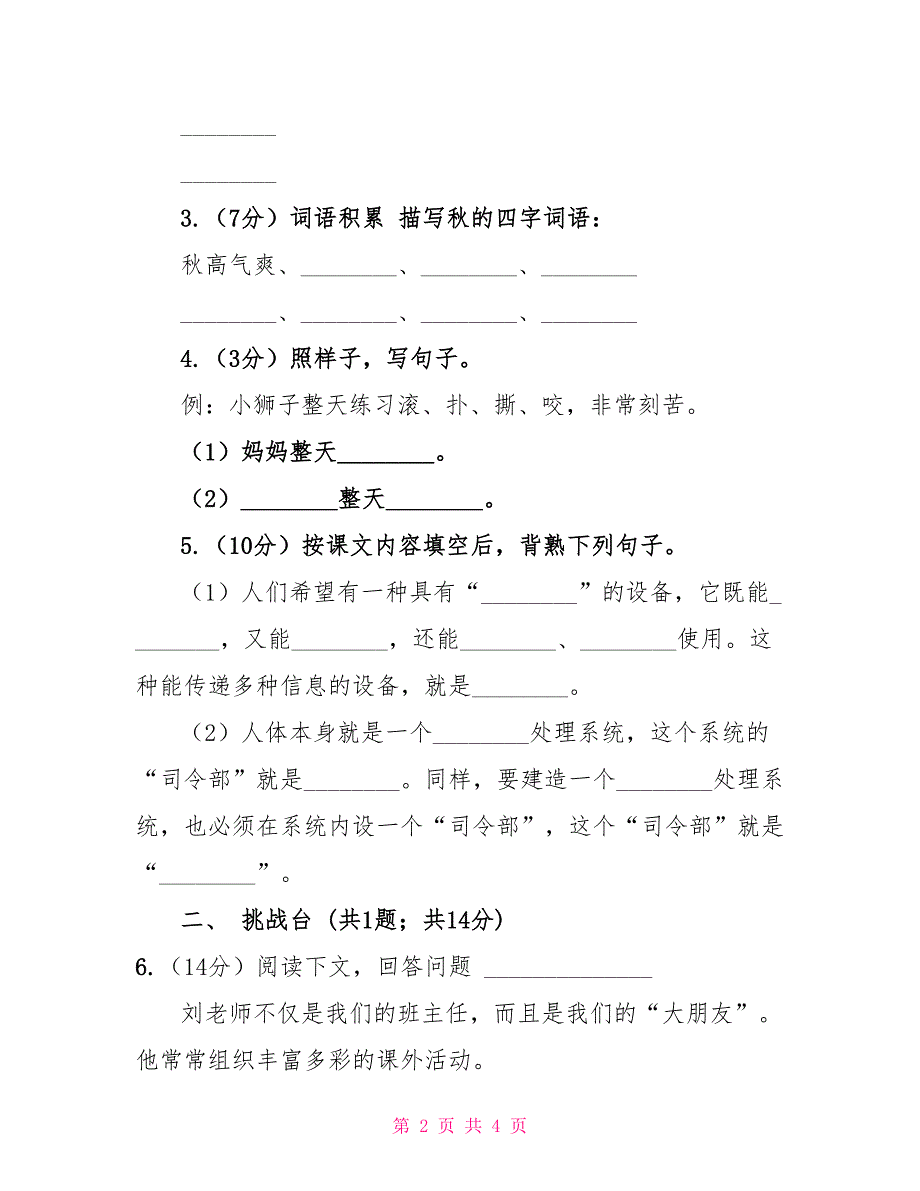 ________
________
3.（7分）词语积累 描写秋的四字词语：
秋高气爽、________、________、________
________、________、________、________
4.（3分）照样子，写句子。
例：小狮子整天练习滚、扑、撕、咬，非常刻苦。
（1）妈妈整天________。
（2）________整天________。
5.（10分）按课文内容填空后，背熟下列句子。
（1）人们希望有一种具有“________”的设备，它既能_
_______，又能________，还能________、________使用。这
种能传递多种信息的设备，就是________。
（2）人体本身就是一个________处理系统，这个系统的
“司令部”就是________。同样，要建造一个________处理系
统，也必须在系统内设一个“司令部”，这个“司令部”就是
“________”。
二、 挑战台 (共1题；共14分)
6.（14分）阅读下文，回答问题 ______________
刘老师不仅是我们的班主任，而且是我们的“大朋友”。
他常常组织丰富多彩的课外活动。
第 2 页 共 4 页